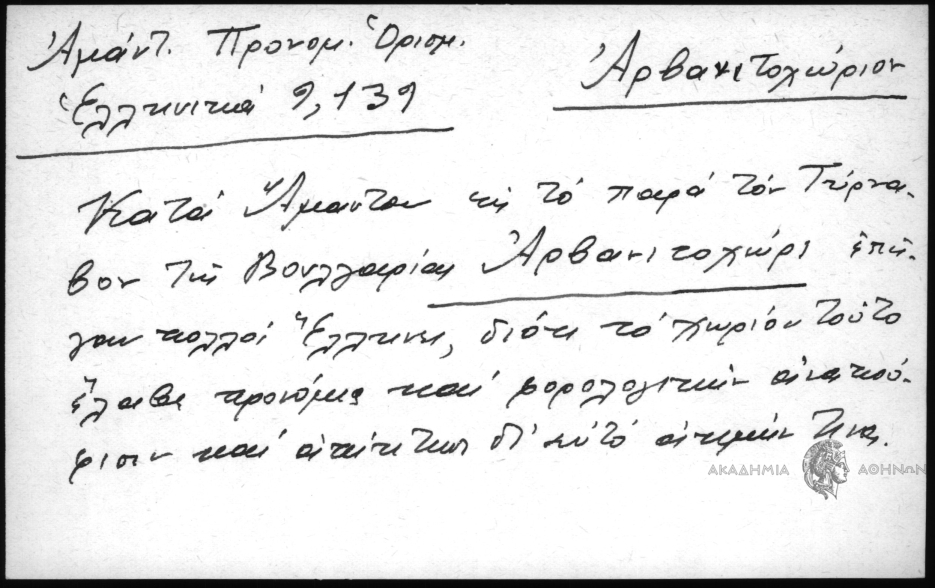 Ἀμάντ. Προνομ. Ὁρισμ.
Ἑλληνικά 9, 139
Ἀρβανιτοχώριον
Κατά Ἄμαντον εἰς τό παρά τόν Τύρνα-
βον τῆς Βουλγαρίας Ἀρβανιτοχώρι ἐπῆ-
γαν πολλοί Ἕλληνες, διότι τό χωρίον τοῦτο
ἔλαβε προνόμια καί φορολογικήν ἀνακού-
φισιν καί ἀπέκτησε δι' αὐτό ἀκμήν τινα.
ΑΚΑΔΗΜΙΑ ΑΘΗΝΩΝ